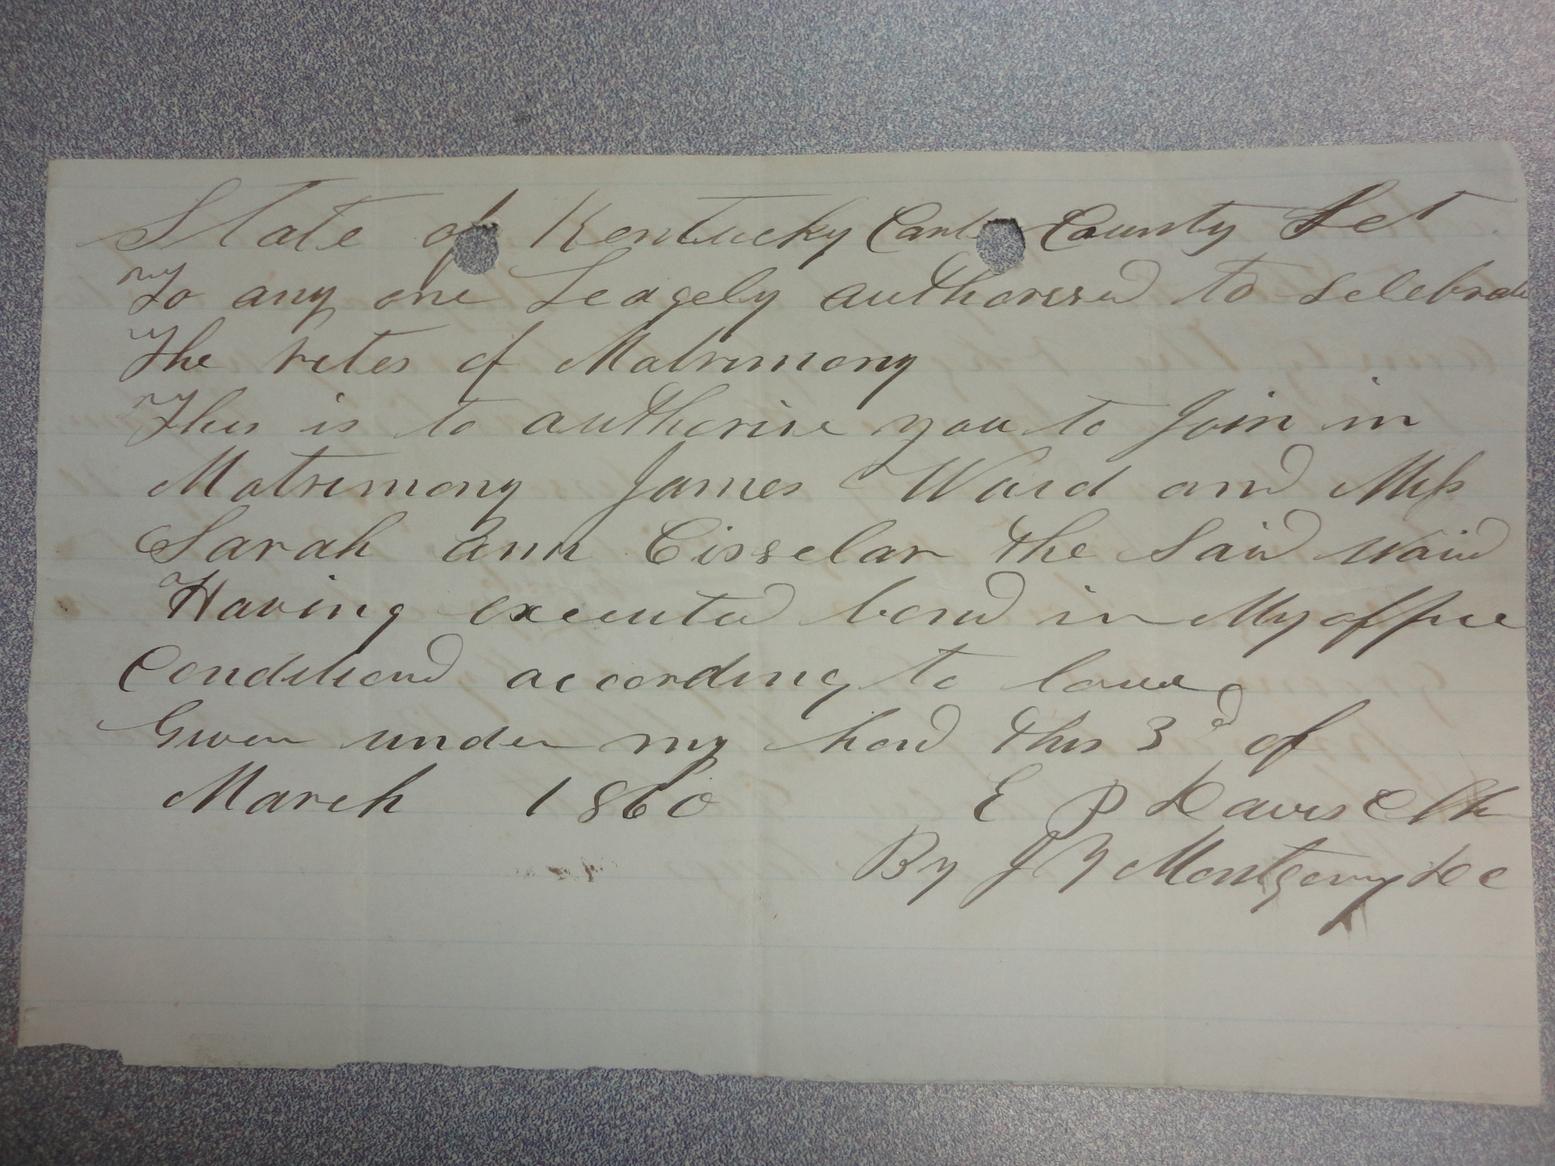 State of Kentucky Cart County Sct
To any one Leagely authorised to selebrate
The rites of Matrimony
This is to authorise you to Join in
Matrimony James Ward and Miss
Sarah Ann Cisselar the Said Ward
Having executed bond in My office
Conditiond according to law
Given under my hand this 3d of
March 1860 E P Davis Clk
By J Montgomery DC